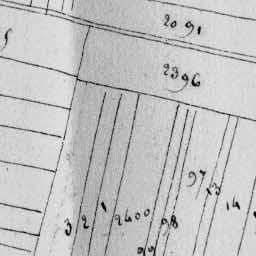 2091
2396
97
13
14
3 2 1 2400 98
99